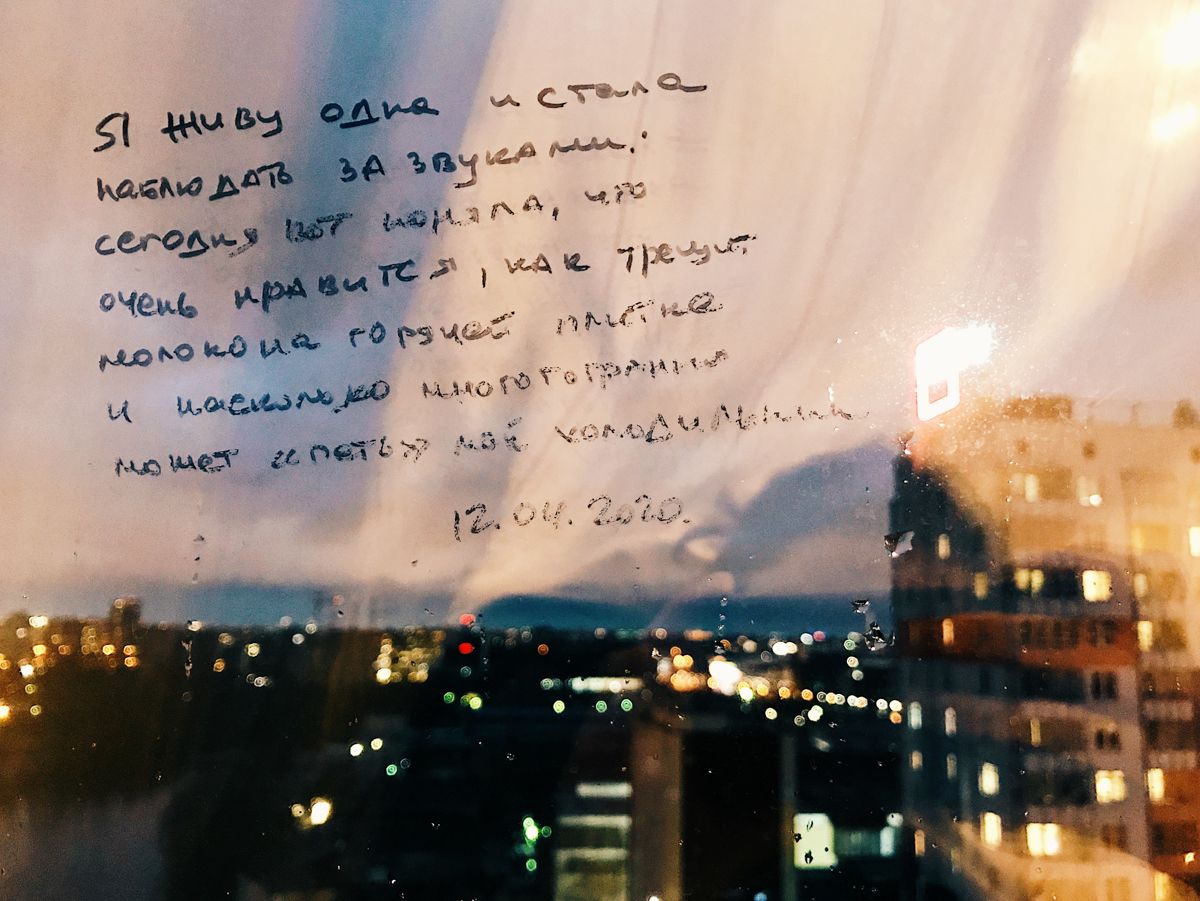 Я живу одна и стала
наблюдать за звуками:
сегодня вот поняла, что
очень нравится, как трещит
молоко на горячей плитке
и насколько многогогранно
может «петь» мой холодильник
12.04.2020.